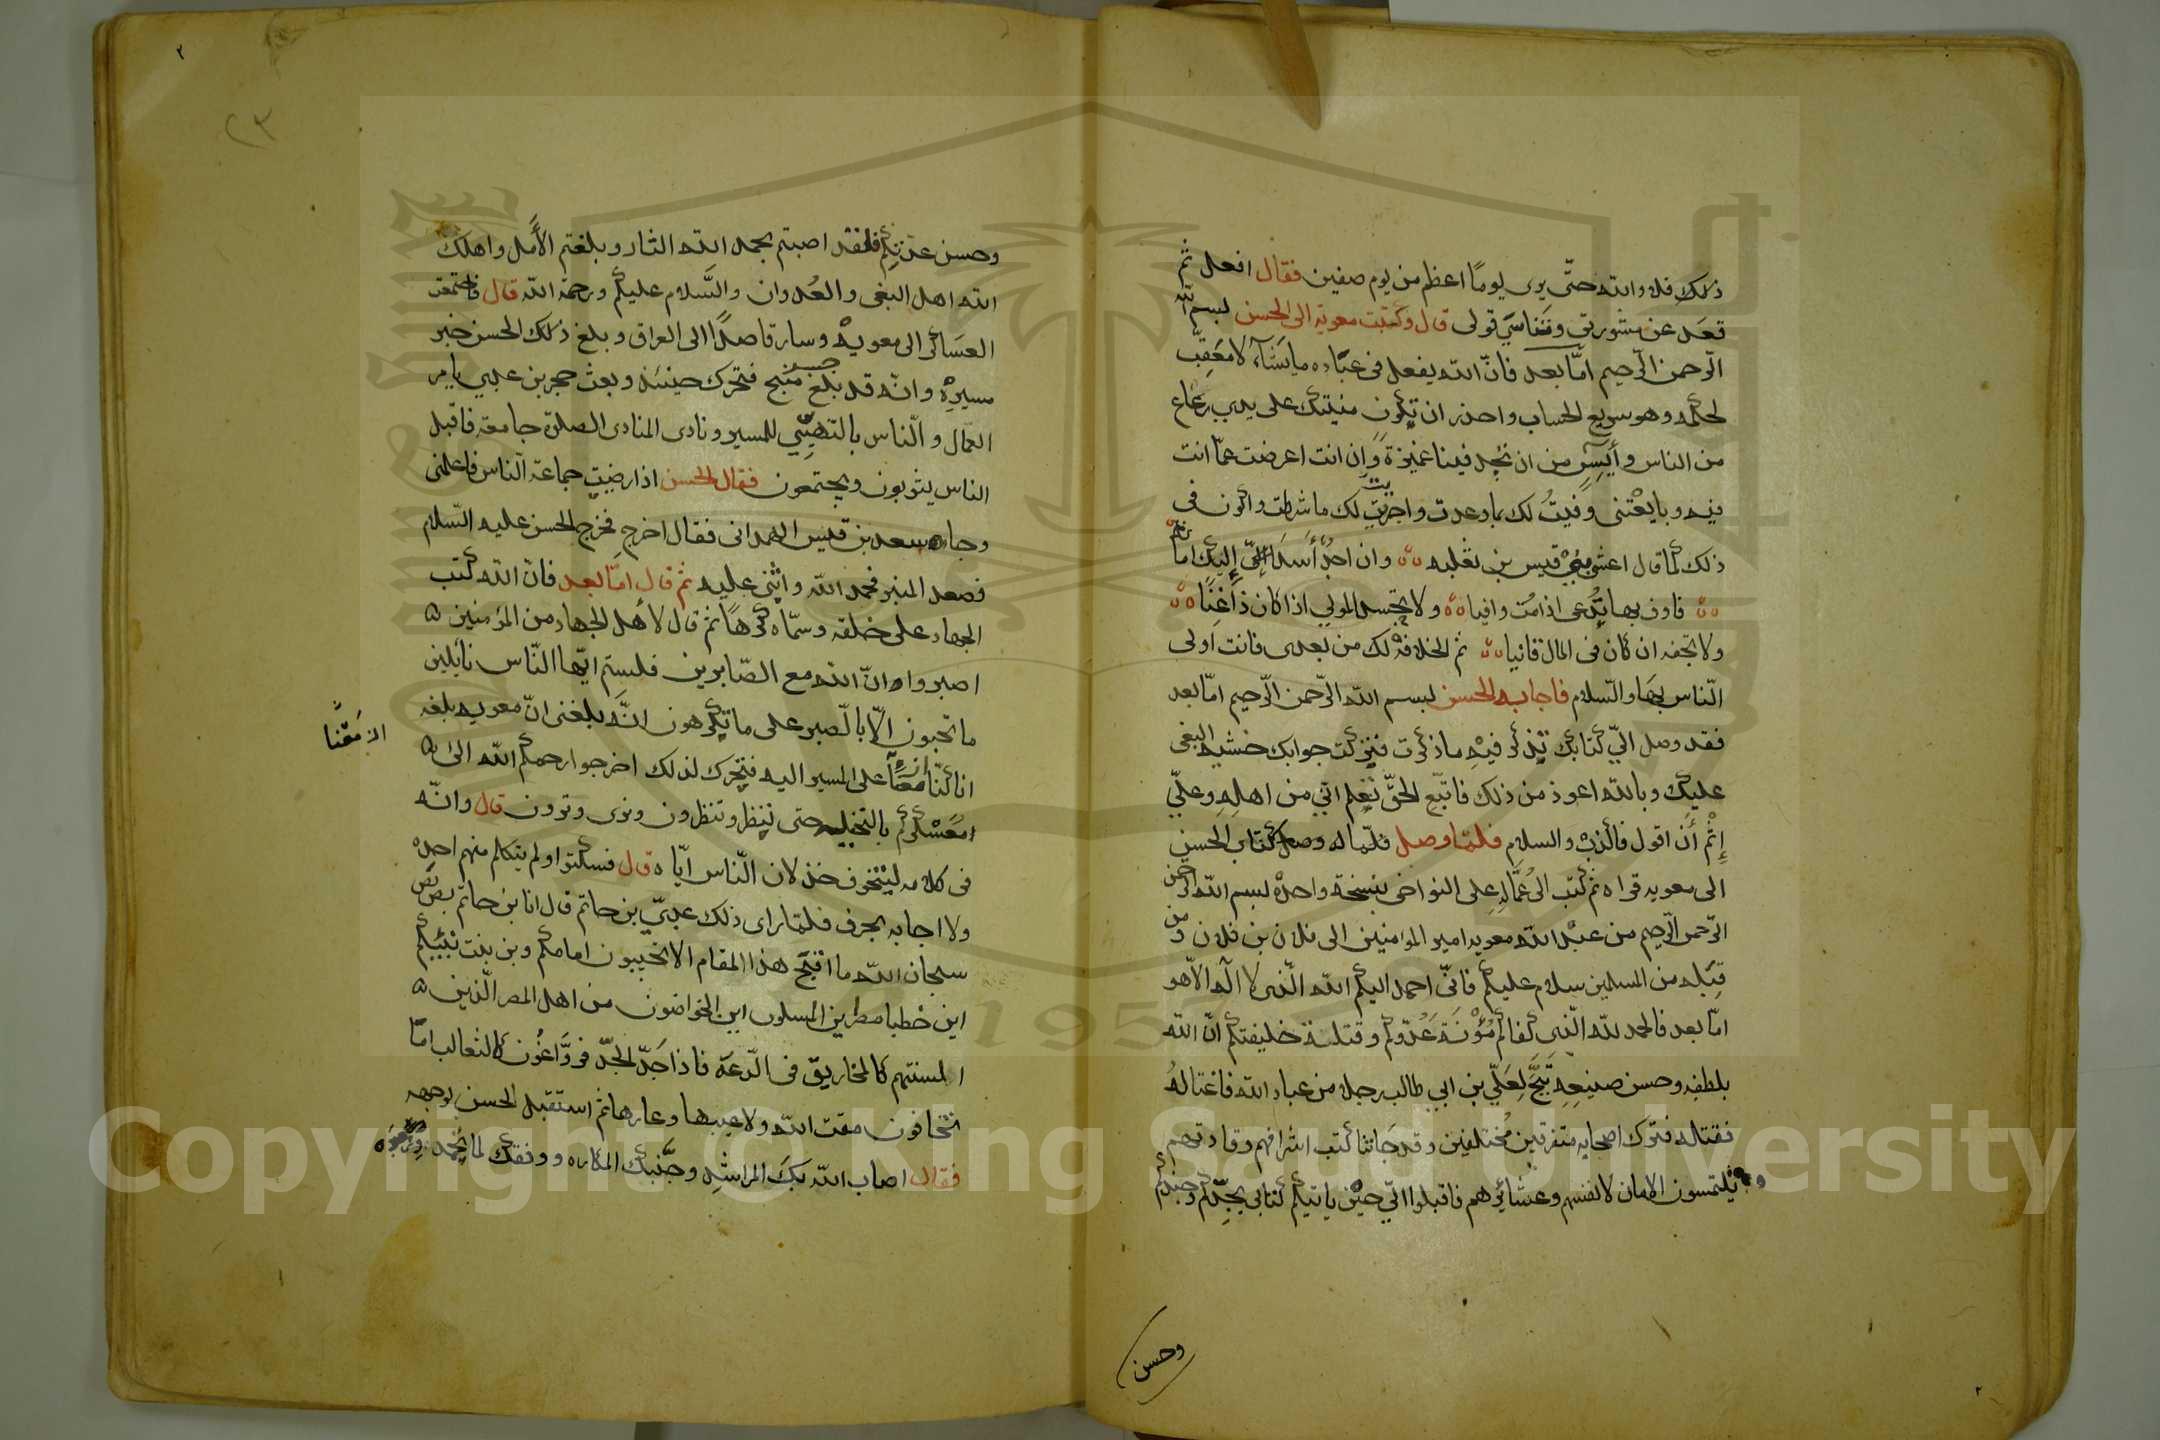 ذلك فلا والله حتّى يرى يومًا اعظم من يوم صفين فقال افعل ثم
قعد عن مشورتى وتناسى قولى قال وكتبت معوية الى الحسن بسم الله
الرّحمن الرّحيم امّا بعد فانّ الله يفعل فى عباده ما يشآء لا معقّب
لحكمه وهو سريع الحساب واحذر ان تكون منيتك على يدي رعاع
من الناس وأيس من ان تجد فينا غميزة وإن انت اعرضت عمّا انت
فيه وبايعتنى وفيتُ لك بما وعدت واجريت لك ما شرطت واكون فى
ذلك كما قال اعشى بنى قيس بن ثعلبه وان احد أسدا إليك امانة
فاوف بها تدعى اذا مت وافيا ولا تحسد المولي اذا كان ذا غنًا
ولا تجفه ان كان فى المال فانيا ثم الخلافة لك من بعدى فانت اولى
النّاس بها والسّلام فاجابه الحسن بسم الله الرّحمن الرّحيم امّا بعد
فقد وصل اليّ كتابك تذكر فيه ما ذكرت فتركت جوابك خشية البغى
عليك وبالله اعوذ من ذلك فاتّبع الحقّ تعلم انّي من اهله وعليّ
إثم أن اقول فاكذب والسلام فلمّا وصل كتاب الحسن
الى معويه قراه ثم كتب الى عمّاله على النواحى بنسخة واحدة بسم الله
الرّحمن الرّحيم من عبد الله معويه امير المؤمنين الى فلان بن فلان ومن
قبله من المسلمين سلام عليكم فانّى احمد اليكم الله الّذى لا اله الّا هو
امّا بعد فالحمد لله الّذى كفاكم مؤنة عدوّكم وقتلة خليفتكم انّ الله
بلطفه وحسن صنيعه تيّح لعليّ بن ابي طالب رجلا من عباد الله فاغتاله
فقتله فترك اصحابه متفرقين مختلفين وقد جائنا كتب اشرافهم وقادتهم
يلتمسون الامان لانفسهم وعشائرهم فاقبلوا اليّ حين ياتيكم كتابى بجدّكم وجندكم
وحسن
وحسن عدتكم فلقد اصبتم بحمد الله الثار وبلغتم الأمل واهلك
الله اهل البغى والعُدوان والسَّلام عليكم ورحمة الله قال فاجتمعت
العساكر الى معويه وسار قاصدًا الى العراق وبلغ ذلك الحسن خبر
مسيره وانه قد بلغ جسر منبج فتحرك حينئذ وبعث حجر بن عدي يامر
العمّال والنّاس بالتهيّي للمسير ونادى المنادى الصلاة جامعة فاقبل
الناس يثوبون ويجتمعون فقال الحسن اذا رضيت جماعة النّاس فاعلمنى
وجاءه سعد بن قيس الهمدانى فقال اخرج فخرج الحسن عليه السّلام
فصعد المنبر فحمد الله واثنى عليه ثم قال امّا بعد فانّ الله كتب
الجهاد على خلقه وسمّاه كرهًا ثم قال لأهل الجهاد من المؤمنين
اصبروا انّ الله مع الصّابرين فلستم ايّها النّاس نائلين
ما تحبون إلّا بالصبر على ما تكرهون انّه بلغنى انّ معويه بلغه
انا كنّا ازمعنا على المسير اليه فتحرك لذلك اخرجوا رحمكم الله الى
ازمَعْنا
معسكركم بالنخيله حتى ننظر وتنظرون ونرى وترون قال وانّه
فى كلامه ليتخوف خذلان النّاس ايّاه قال فسكتوا ولم يتكلم منهم احد
ولا اجابه بحرف فلمّا راى ذلك عديّ بن حاتم قال انا بن حاتم
سبحان الله ما اقبح هذا المقام الا تجيبون امامكم وبن بنت نبيّكم
اين خطبا مضر اين المسلمون اين الخواضون من اهل المصر الّذين
السنتهم كالمخاريق فى الدّعة فاذا جدّ الجدّ فروّاغون كالثعالب امّا
تخافون مقت الله ولا عيبها وعارها ثم استقبل الحسن بوجهه
فقال اصاب الله بك المراشد وجنّبك المكاره ووفقك لما يُحمد
Copyright © King Saud University
1957